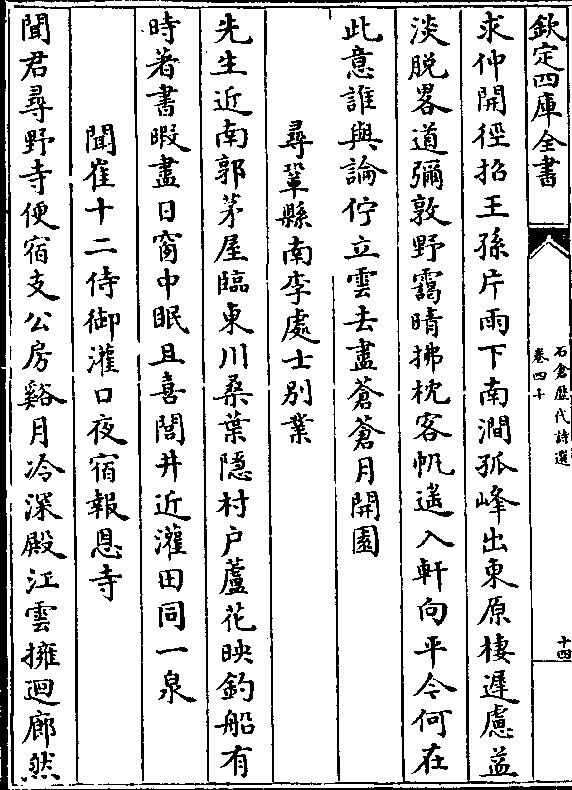 欽定四庫全書
石倉歴代詩選
卷四十
十四
求仲開徑招王孫片雨下南澗孤峰出東原棲遲慮益
淡脱畧道彌敦野靄晴拂枕客帆遥入軒向平今何在
此意誰與論佇立雲去盡蒼蒼月開園
尋鞏縣南李處士别業
先生近南郭茅屋臨東川桑葉隱村户蘆花映釣船有
時著書暇盡日窗中眠且喜閭井近灌田同一泉
聞崔十二侍御灌口夜宿報恩寺
聞君尋野寺便宿支公房谿月冷深殿江雲擁迴廊然